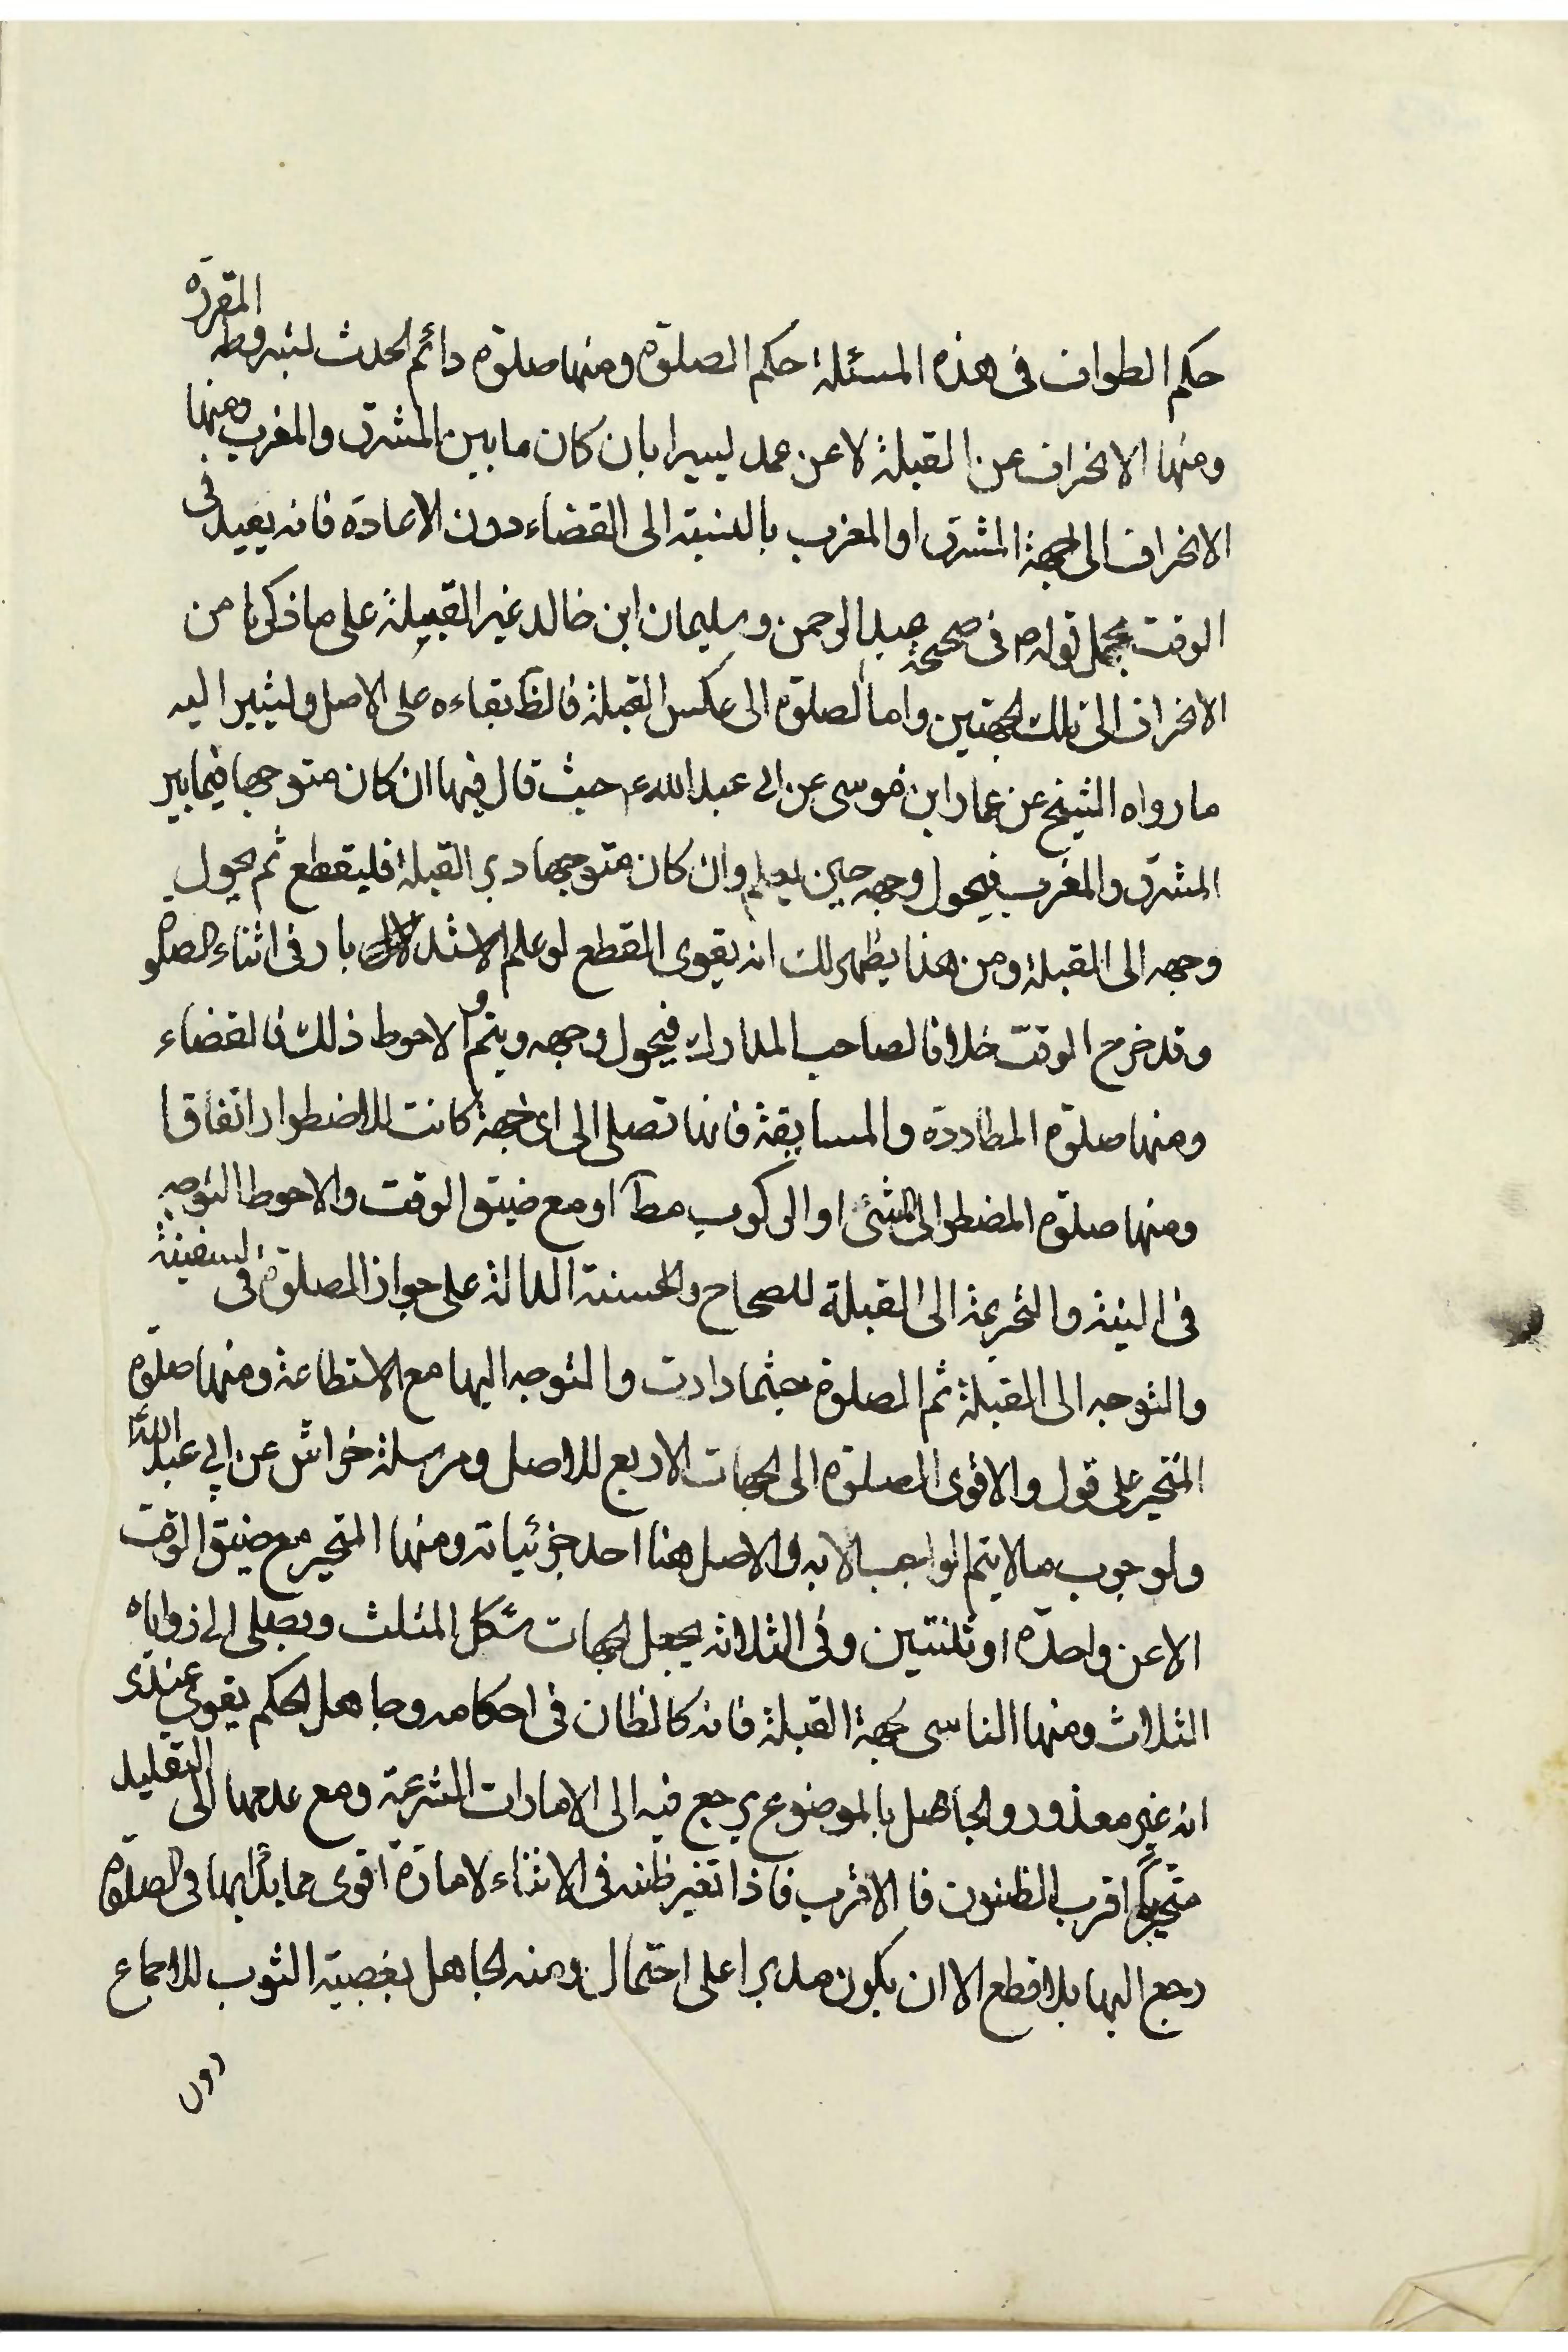 حكم الطواف فى هذه المسئلة حكم الصلوة ومنها صلوة دائم الحدث لشروطه المقررة
ومنها الانحراف عن القبلة لا عن عمد يسيرا بان كان ما بين المشرق والمغرب ومنها
الانحراف الى جهة المشرق او المغرب بالنسبة الى القضاء دون الاعادة فانه يعيد فى
الوقت بحمل قوله فى صحيحة عبد الرحمن وسليمان ابن خالد غير القبلة على ما ذكرنا من
الانحراف الى تلك الجهتين واما الصلوة الى عكس القبلة فالظ بقاءه على الاصل ويشير اليه
ما رواه الشيخ عن عمار ابن موسى عن ابى عبد الله ع حيث قال فيها ان كان متوجها فيما بين
المشرق والمغرب فيحول وجهه حين يعلم وان كان متوجها دبر القبلة فليقطع ثم يحول
وجهه الى القبلة ومن هذا يظهر لك انه يقوى القطع لو علم الاستدبار فى اثناء الصلوة
وقد خرج الوقت خلافا لصاحب المدارك فيحول وجهه ويتم والاحوط ذلك فالقضاء
ومنها صلوة المطاردة والمسايفة فانها تصلى الى اى جهة كانت للاضطرار اتفاقا
ومنها صلوة المضطر الى المشى او الركوب مطآ او مع ضيق الوقت والاحوط التوجه
فى النية والتحريمة الى القبلة للصحاح والحسنة الدالة على جواز الصلوة فى السفينة
والتوجه الى القبلة ثم الصلوة حيثما دارت والتوجه اليها مع الاستطاعة ومنها صلوة
المتحير على قول والاقوى الصلوة الى الجهات الاربع للاصل ومرسلة خراش عن ابي عبد الله
ولوجوب ما لا يتم الواجب الا به والاصل هنا احد جزئياته ومنها المتحير مع ضيق الوقت
الا عن واحدة او ثنتين وفى الثلاثة يجعل الجهات شكل المثلث ويصلى الى زواياه
الثلاث ومنها الناسى لجهة القبلة فانه كالظان فى احكامه وجاهل الحكم يقوى عندى
انه غير معذور والجاهل بالموضوع يرجع فيه الى الامارات الشرعية ومع عدمها الى التقليد
متحريا اقرب الظنون فالاقرب فاذا تغير ظنه فى الاثناء لامارة اقوى مما بدا بها فى الصلوة
رجع اليها بلا قطع الا ان يكون مدبرا على احتمال ومنه الجاهل بغصبية الثوب للاجماع
دون